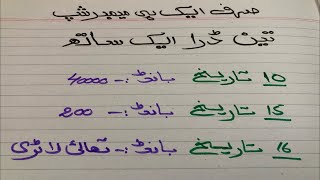 صرف ایک ہی میمبرشپ
تین ڈرا ایک ساتھ
10 تاریخ بانوڈ :- 40000
15 تاریخ بانوڈ :- 200
16 تاریخ بانوڈ :- تھائی لاٹری